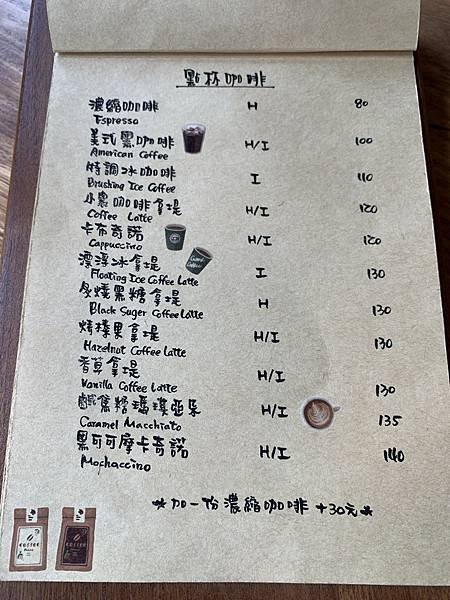 點杯咖啡
濃縮咖啡 H 80
Espresso
美式黑咖啡 H/I 100
American Coffee
特調冰咖啡 I 110
Brushing Ice Coffee
小農咖啡拿堤 H/I 120
Coffee Latte
卡布奇諾 H/I 120
Cappuccino
漂浮冰拿堤 I 130
Floating Ice Coffee Latte
炙燒黑糖拿堤 H 130
Black Suger Coffee Latte
烤榛果拿堤 H/I 130
Hazelnot Coffee Latte
香草拿堤 H/I 130
Vanilla Coffee Latte
鹹焦糖瑪琪朵 H/I 135
Caramel Macchiato
黑可可摩卡奇諾 H/I 140
Mochaccino
★加一份濃縮咖啡 +30元★
COFFEE
COFFEE